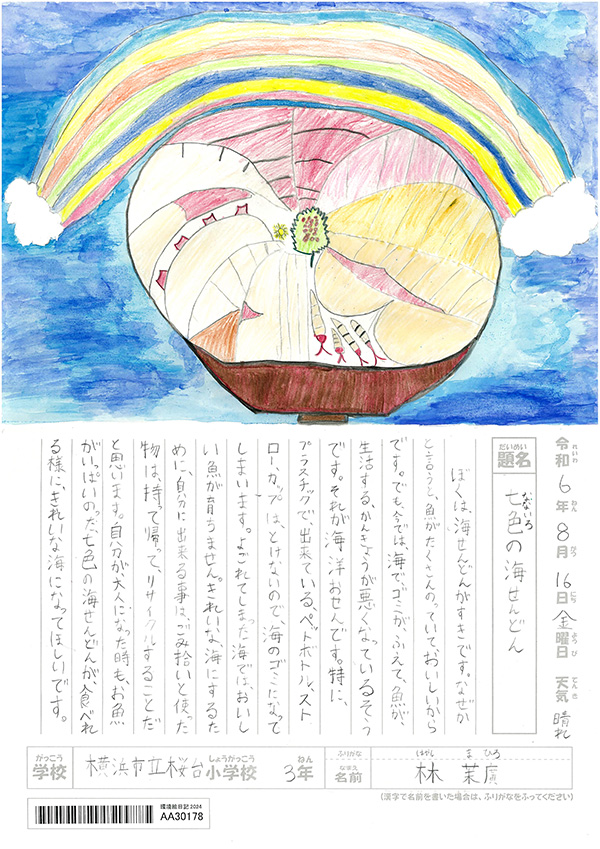 令和6年8月16日金曜日 天気 晴れ
れいわ ねん がつ にち ようび てんき
だいめい
題名
なないろ
七色の海せんどん
ぼくは、海せんどんがすきです。なぜか
と言うと、魚がたくさんのっていて、おいしいから
です。でも、今では、海で、ゴミが、ふえて、魚が、
生活する、かんきょうが悪くなっているそう
です。それが海洋おせんです。特に、
プラスチックで、出来ている、ペットボトル、スト
ロー、カップは、とけないので、海のゴミになって
しまいます。よごれてしまった海では、おいし
い魚が育ちません。きれいな、海にするた
めに、自分に出来る事は、ごみ拾いと使った
物は、持って帰って、リサイクルすることだ
と思います。自分が大人になった時も、お魚
がいっぱいのった、七色の海せんどんが、食べれ
る様に、きれいな海になってほしいです。
がっこう しょうがっこう ねん
学校 横浜市立桜台小学校 3年
ふりがな はやし まひろ
なまえ
名前 林 茉廣
(漢字で名前を書いた場合は、ふりがなをふってください)
環境絵日記2024
AA30178